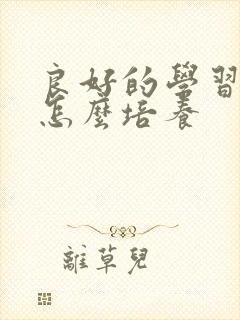 良好的學習
怎麼培養
離草兒